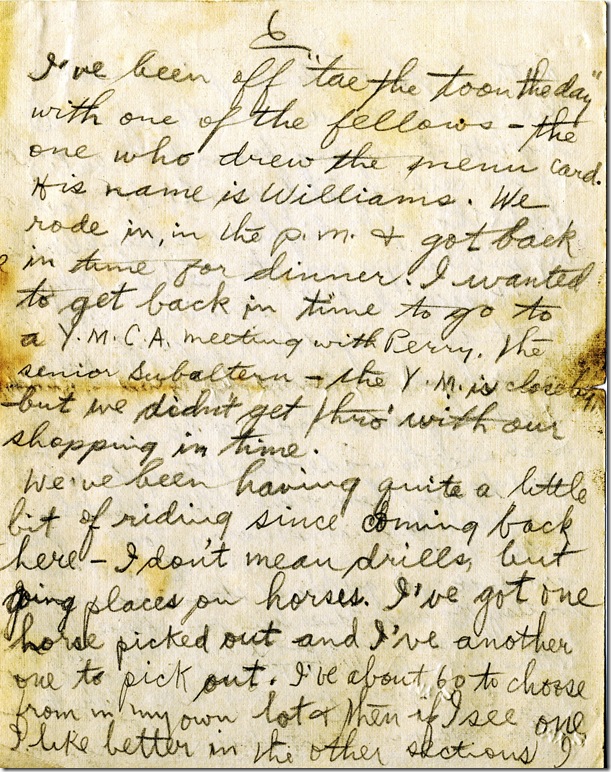 6
I've been off "tae the toon the day"
with one of the fellows - the
one who drew the menu card.
His name is Williams. We
rode in, in the p.m. & got back
in time for dinner. I wanted
to get back in time to go to
a Y.M.C.A. meeting with Perry, the
senior Subaltern - the Y.M. is close by,
-but we didn't get thro' with our
shopping in time.
We've been having quite a little
bit of riding since coming back
here - I don't mean drills, but
going places on horses. I've got one
horse picked out and I've another
one to pick out. I've about 60 to choose
from in my own lot & then if I see one
I like better in the other sections I